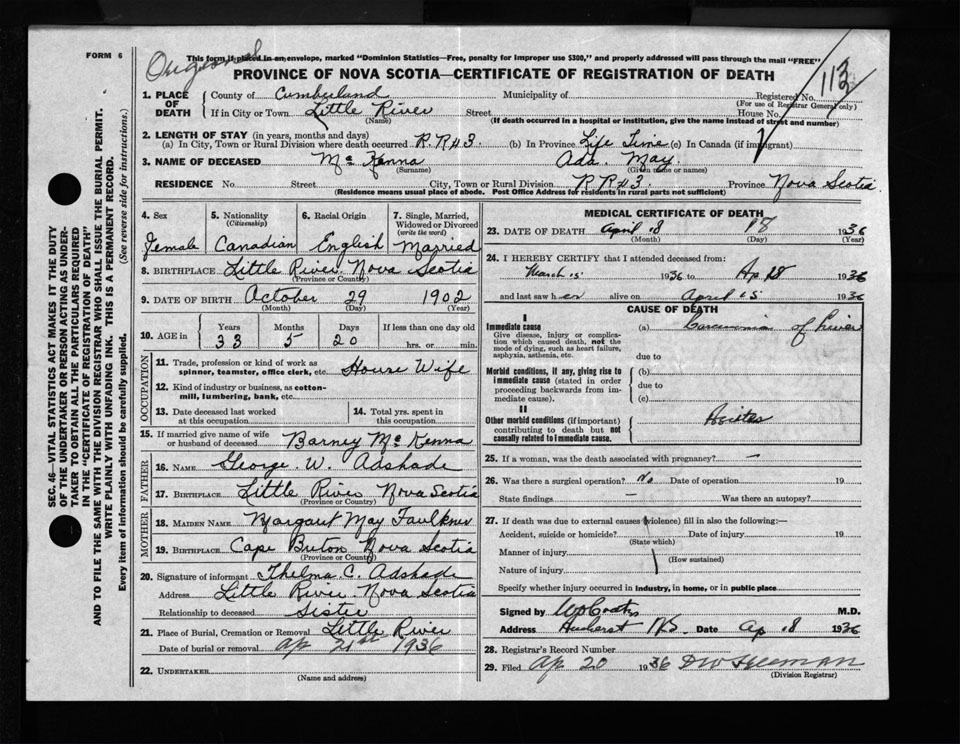 FORM 6
Original
This form if placed in an envelope, marked "Dominion Statistics—Free, penalty for improper use $300," and properly addressed will pass through the mail "FREE"
PROVINCE OF NOVA SCOTIA—CERTIFICATE OF REGISTRATION OF DEATH
1. PLACE OF DEATH
County of Cumberland Municipality of Registered No. 113
(For use of Registrar General only)
If in City or Town Little River Street House No.
(Name) (If death occurred in a hospital or institution, give the name instead of street and number)
2. LENGTH OF STAY (in years, months and days)
(a) In City, Town or Rural Division where death occurred R.R#3. (b) In Province Life Time (c) In Canada (if immigrant)
3. NAME OF DECEASED McKenna Ada. May.
(Surname) (Given name or names)
RESIDENCE No. Street City, Town or Rural Division RR#3. Province Nova Scotia.
(Residence means usual place of abode. Post Office Address for residents in rural parts not sufficient)
4. Sex 5. Nationality (Citizenship) 6. Racial Origin 7. Single, Married, Widowed or Divorced (write the word)
Female Canadian English Married
8. BIRTHPLACE Little River Nova Scotia
(Province or Country)
9. DATE OF BIRTH October 29 1902
(Month) (Day) (Year)
10. AGE in Years Months Days If less than one day old
33 5 20 hrs. or min.
OCCUPATION
11. Trade, profession or kind of work as spinner, teamster, office clerk, etc. House Wife
12. Kind of industry or business, as cotton-mill, lumbering, bank, etc.
13. Date deceased last worked at this occupation 14. Total yrs. spent in this occupation
15. If married give name of wife or husband of deceased Barney McKenna
FATHER
16. NAME George. W. Adshade
17. BIRTHPLACE Little River Nova Scotia
(Province or Country)
MOTHER
18. MAIDEN NAME Margaret May Faulkner
19. BIRTHPLACE Cape Breton Nova Scotia
(Province or Country)
20. Signature of informant Thelma C. Adshade
Address Little River Nova Scotia
Relationship to deceased Sister
21. Place of Burial, Cremation or Removal Little River
Date of burial or removal Ap 21st 1936
22. UNDERTAKER
(Name and address)
MEDICAL CERTIFICATE OF DEATH
23. DATE OF DEATH April 18 18 1936
(Month) (Day) (Year)
24. I HEREBY CERTIFY that I attended deceased from:
March 15 1936 to Ap 18 1936
and last saw her alive on April 15 1936
CAUSE OF DEATH
I
Immediate cause (a) Carcinoma of Liver
Give disease, injury or complication which caused death, not the mode of dying, such as heart failure, asphyxia, asthenia, etc.
due to
Morbid conditions, if any, giving rise to immediate cause (stated in order proceeding backwards from immediate cause).
(b)
due to
(c)
II
Other morbid conditions (if important) contributing to death but not causally related to immediate cause. Ascites
25. If a woman, was the death associated with pregnancy? —
26. Was there a surgical operation? No Date of operation 19
State findings — Was there an autopsy?
27. If death was due to external causes (violence) fill in also the following:—
Accident, suicide or homicide? Date of injury 19
(State which)
Manner of injury
(How sustained)
Nature of injury
Specify whether injury occurred in industry, in home, or in public place
Signed by M.D.
Address Amherst N.S. Date Ap 18 1936
28. Registrar's Record Number
29. Filed Ap 20 1936
(Division Registrar)
SEC. 46—VITAL STATISTICS ACT MAKES IT THE DUTY
OF THE UNDERTAKER OR PERSON ACTING AS UNDER-
TAKER TO OBTAIN ALL THE PARTICULARS REQUIRED
IN THE "CERTIFICATE OF REGISTRATION OF DEATH"
AND TO FILE THE SAME WITH THE DIVISION REGISTRAR WHO SHALL ISSUE THE BURIAL PERMIT.
WRITE PLAINLY WITH UNFADING INK. THIS IS A PERMANENT RECORD.
Every item of information should be carefully supplied. (See reverse side for instructions.)